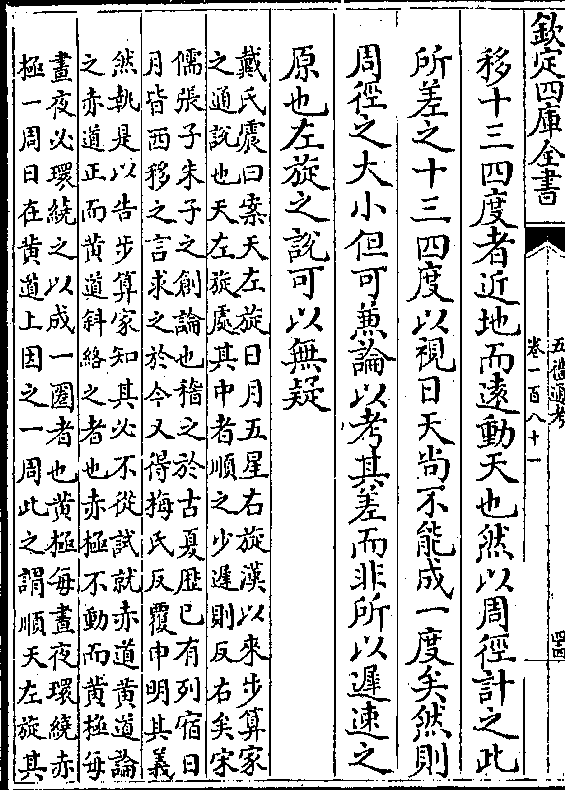 欽定四庫全書
五禮通考
卷一百八十一
四四
移十三四度者近地而遠動天也然以周徑計之此
所差之十三四度以視日天尚不能成一度矣然則
周徑之大小但可兼論以考其差而非所以遲速之
原也左旋之說可以無疑
戴氏震曰案天左旋日月五星右旋漢以來步算家
之通說也天左旋處其中者順之少遲則反右矣宋
儒張子朱子之創論也稽之於古夏歴已有列宿日
月皆西移之言求之於今又得梅氏反覆申明其義
然執是以告步算家知其必不從試就赤道黄道論
之赤道正而黄道斜絡之者也赤極不動而黄極每
晝夜必環繞之以成一圏者也黄極每晝夜環繞赤
極一周日在黄道上因之一周此之謂順天左旋其